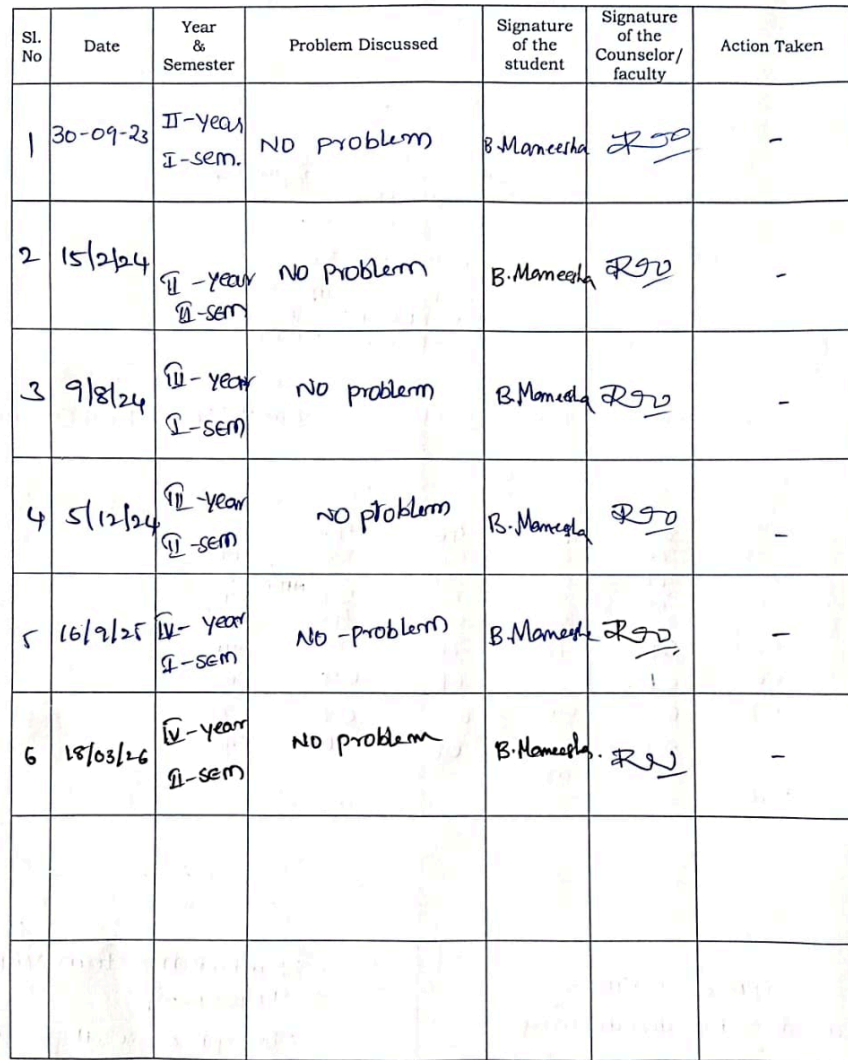 Sl. No | Date | Year & Semester | Problem Discussed | Signature of the student | Signature of the Counselor/ faculty | Action Taken
1 | 30-09-23 | II-year I-sem. | NO problem | B.Maneesha | | -
2 | 15/2/24 | II-year II-sem | NO problem | B.Maneesha | | -
3 | 9/8/24 | III-year I-sem | NO problem | B.Maneesha | | -
4 | 5/12/24 | III-year II-sem | NO problem | B.Maneesha | | -
5 | 16/9/25 | IV-year I-sem | NO-problem | B.Maneesha | | -
6 | 18/03/26 | IV-year II-sem | NO problem | B.Maneesha. | | -